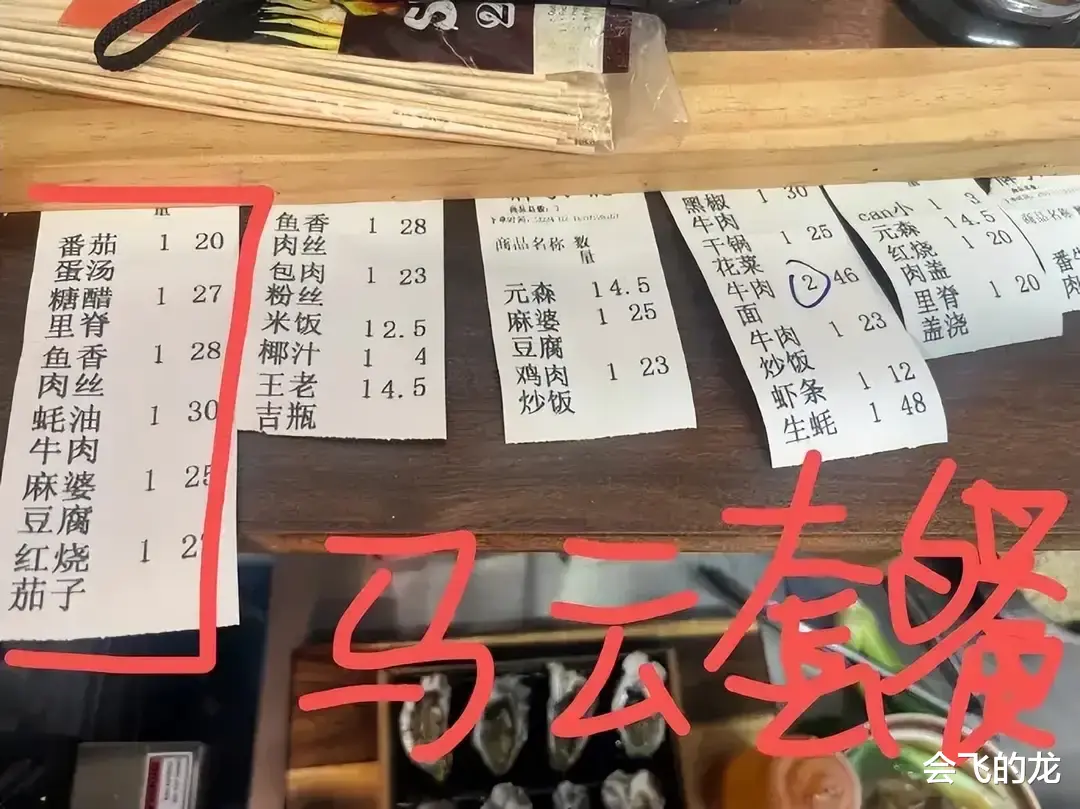 番茄 1 20
蛋汤
糖醋 1 27
里脊
鱼香 1 28
肉丝
蚝油 1 30
牛肉
麻婆 1 25
豆腐
红烧 1 2
茄子
鱼香 1 28
肉丝
包肉 1 23
粉丝
米饭 1 2.5
椰汁 1 4
王老 1 4.5
吉瓶
商品总数: 7
商品名称 数
量
元森 1 4.5
麻婆 1 25
豆腐
鸡肉 1 23
炒饭
黑椒 1 30
牛肉
干锅 1 25
花菜
牛肉 2 46
面
牛肉 1 23
炒饭
虾条 1 12
生蚝 1 48
can小 1 3
元森 1 4.5
红烧 1 20
肉盖
里脊 1 20
盖浇
商品名称
番
牛
肉
马云套餐
会飞的龙